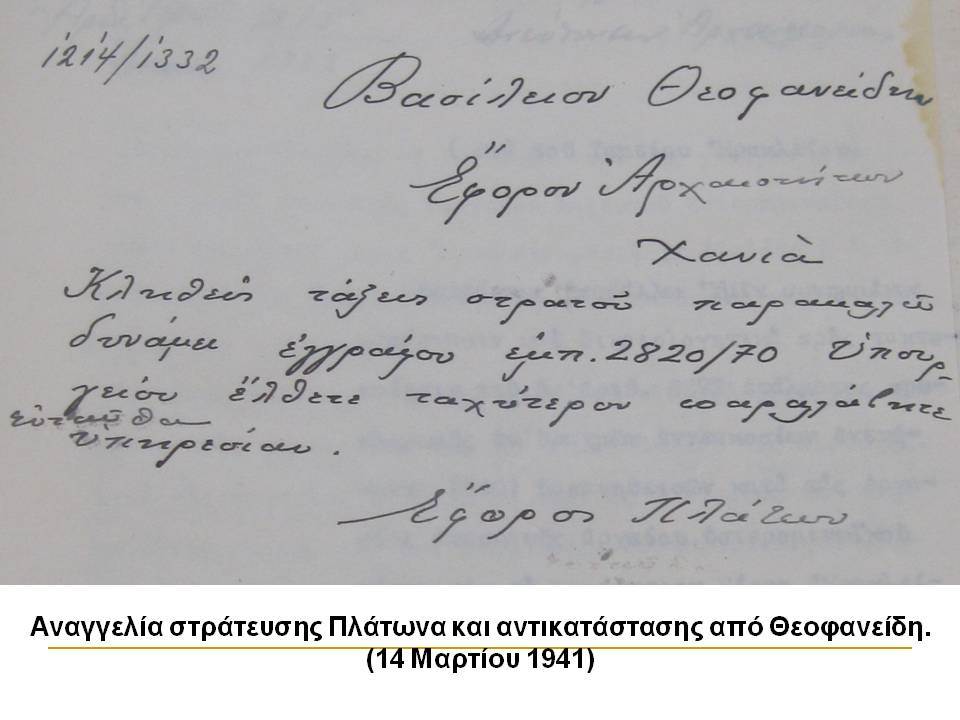 1214/1332
Βασίλειον Θεοφανείδην
Ἔφορον Ἀρχαιοτήτων
Χανιὰ
Κληθεὶς τάξεις στρατοῦ παρακαλῶ
δυνάμει ἐγγράφου ἐμπ. 2820/70 Ὑπουρ
γείου ἔλθετε ταχύτερον παραλάβητε
ἐνταῦθα
ὑπηρεσίαν.
Ἔφορος Πλάτων
Αναγγελία στράτευσης Πλάτωνα και αντικατάστασης από Θεοφανείδη.
(14 Μαρτίου 1941)